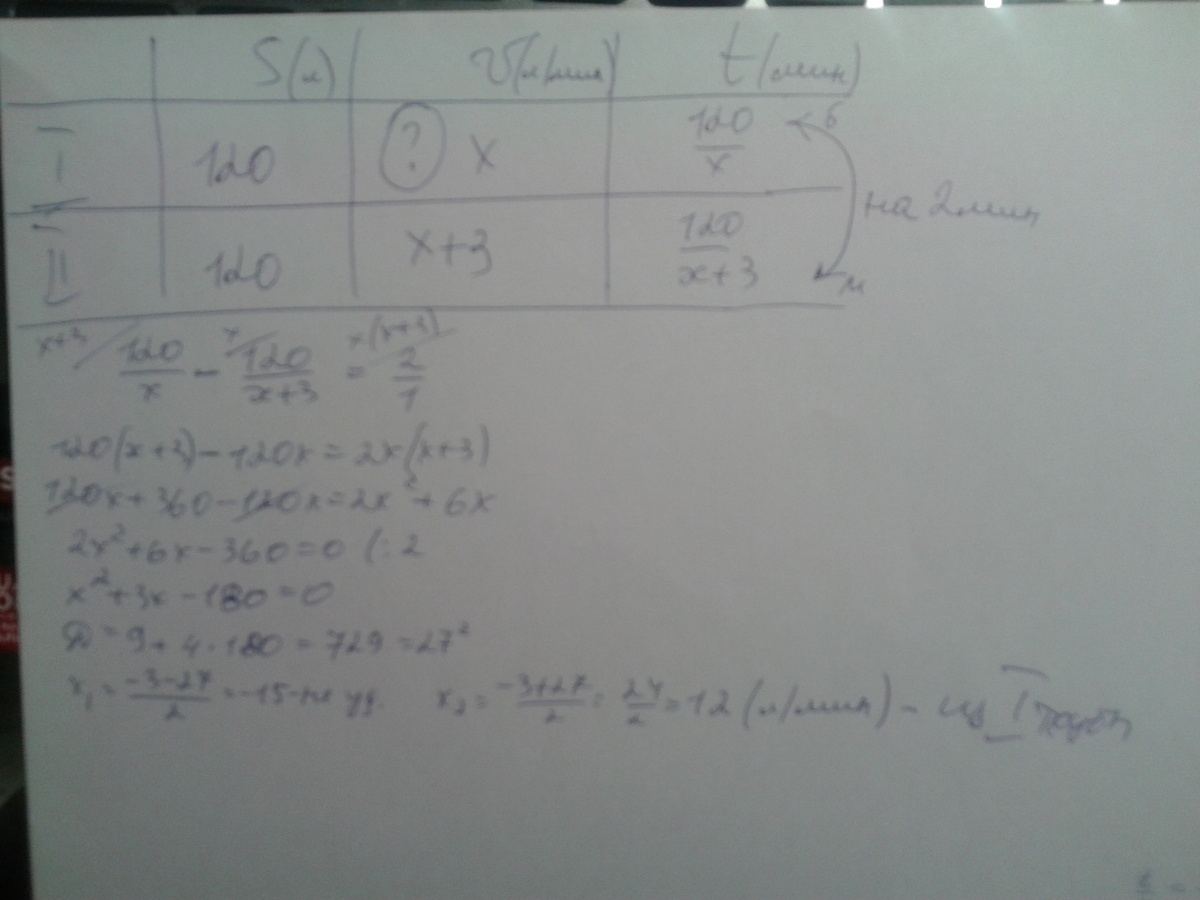 S(л) V(л/мин) t(мин)
I 120 ? X 120/x б
на 2 мин
II 120 x+3 120/x+3 м
x+3 120/x - x 120/x+3 = x(x+3) 2/1
120(x+3)-120x=2x(x+3)
120x+360-120x=2x²+6x
2x²+6x-360=0 (:2
x²+3x-180=0
D=9+4·180=729=27²
x₁=-3-27/2=-15-не уд. x₂=-3+27/2=24/2=12(л/мин)- из I трубы